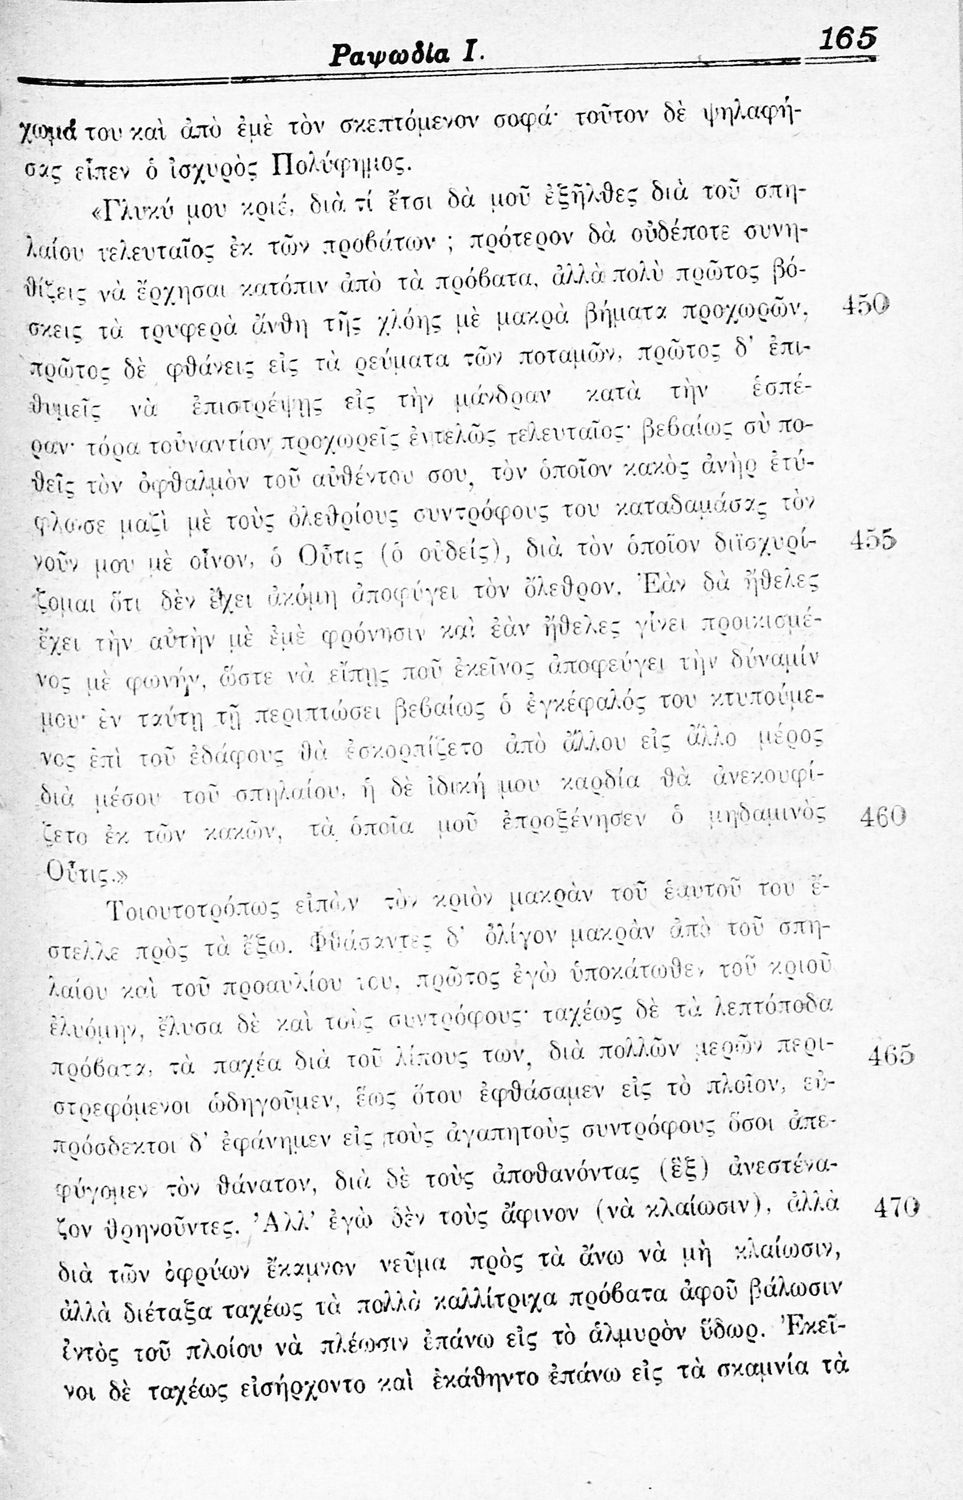 Ραψωδία Ι.
165
χωμά του καὶ ἀπὸ ἐμὲ τὸν σκεπτόμενον σοφά· τοῦτον δὲ ψηλαφή-
σας εἶπεν ὁ ἰσχυρὸς Πολύφημος.
«Γλυκύ μου κριέ, διὰ τί ἔτσι δὰ μοῦ ἐξῆλθες διὰ τοῦ σπη-
λαίου τελευταῖος ἐκ τῶν προβάτων ; πρότερον δὰ οὐδέποτε συνη-
θίζεις νὰ ἔρχησαι κατόπιν ἀπὸ τὰ πρόβατα, ἀλλὰ πολὺ πρῶτος βό-
σκεις τὰ τρυφερὰ ἄνθη τῆς χλόης μὲ μακρὰ βήματα προχωρῶν, 450
πρῶτος δὲ φθάνεις εἰς τὰ ρεύματα τῶν ποταμῶν, πρῶτος δ' ἐπι-
θυμεῖς νὰ ἐπιστρέψῃς εἰς τὴν μάνδραν κατὰ τὴν ἑσπέ-
ραν· τόρα τοὐναντίον προχωρεῖς ἐντελῶς τελευταῖος· βεβαίως σὺ πο-
θεῖς τὸν ὀφθαλμὸν τοῦ αὐθέντου σου, τὸν ὁποῖον κακὸς ἀνὴρ ἐτύ-
φλωσε μαζὶ μὲ τοὺς ὀλεθρίους συντρόφους του καταδαμάσας τὸν
νοῦν μου μὲ οἶνον, ὁ Οὖτις (ὁ οὐδείς), διὰ τὸν ὁποῖον διϊσχυρί- 455
ζομαι ὅτι δὲν ἔχει ἀκόμη ἀποφύγει τὸν ὄλεθρον. Ἐὰν δὰ ἤθελες
ἔχει τὴν αὐτὴν μὲ ἐμὲ φρόνησιν καὶ ἐὰν ἤθελες γίνει προικισμέ-
νος μὲ φωνήν, ὥστε νὰ εἴπῃς ποῦ ἐκεῖνος ἀποφεύγει τὴν δύναμίν
μου· ἐν ταύτῃ τῇ περιπτώσει βεβαίως ὁ ἐγκέφαλός του κτυπούμε-
νος ἐπὶ τοῦ ἐδάφους θὰ ἐσκορπίζετο ἀπὸ ἄλλου εἰς ἄλλο μέρος
διὰ μέσου τοῦ σπηλαίου, ἡ δὲ ἰδική μου καρδία θὰ ἀνεκουφί-
ζετο ἐκ τῶν κακῶν, τὰ ὁποῖα μοῦ ἐπροξένησεν ὁ μηδαμινὸς 460
Οὖτις.»
Τοιουτοτρόπως εἰπὼν τὸν κριὸν μακρὰν τοῦ ἑαυτοῦ του ἔ-
στελλε πρὸς τὰ ἔξω. Φθάσαντες δ' ὀλίγον μακρὰν ἀπὸ τοῦ σπη-
λαίου καὶ τοῦ προαυλίου του, πρῶτος ἐγὼ ὑποκάτωθεν τοῦ κριοῦ
ἐλυόμην, ἔλυσα δὲ καὶ τοὺς συντρόφους· ταχέως δὲ τὰ λεπτόποδα
πρόβατα, τὰ παχέα διὰ τοῦ λίπους των, διὰ πολλῶν μερῶν περι- 465
στρεφόμενοι ὡδηγοῦμεν, ἕως ὅτου ἐφθάσαμεν εἰς τὸ πλοῖον, εὐ-
πρόσδεκτοι δ' ἐφάνημεν εἰς τοὺς ἀγαπητοὺς συντρόφους ὅσοι ἀπε-
φύγομεν τὸν θάνατον, διὰ δὲ τοὺς ἀποθανόντας (ἓξ) ἀνεστένα-
ζον θρηνοῦντες. Ἀλλ' ἐγὼ δὲν τοὺς ἄφινον (νὰ κλαίωσιν), ἀλλὰ 470
διὰ τῶν ὀφρύων ἔκαμνον νεῦμα πρὸς τὰ ἄνω νὰ μὴ κλαίωσιν,
ἀλλὰ διέταξα ταχέως τὰ πολλὰ καλλίτριχα πρόβατα ἀφοῦ βάλωσιν
ἐντὸς τοῦ πλοίου νὰ πλέωσιν ἐπάνω εἰς τὸ ἁλμυρὸν ὕδωρ. Ἐκεῖ-
νοι δὲ ταχέως εἰσήρχοντο καὶ ἐκάθηντο ἐπάνω εἰς τὰ σκαμνία τὰ